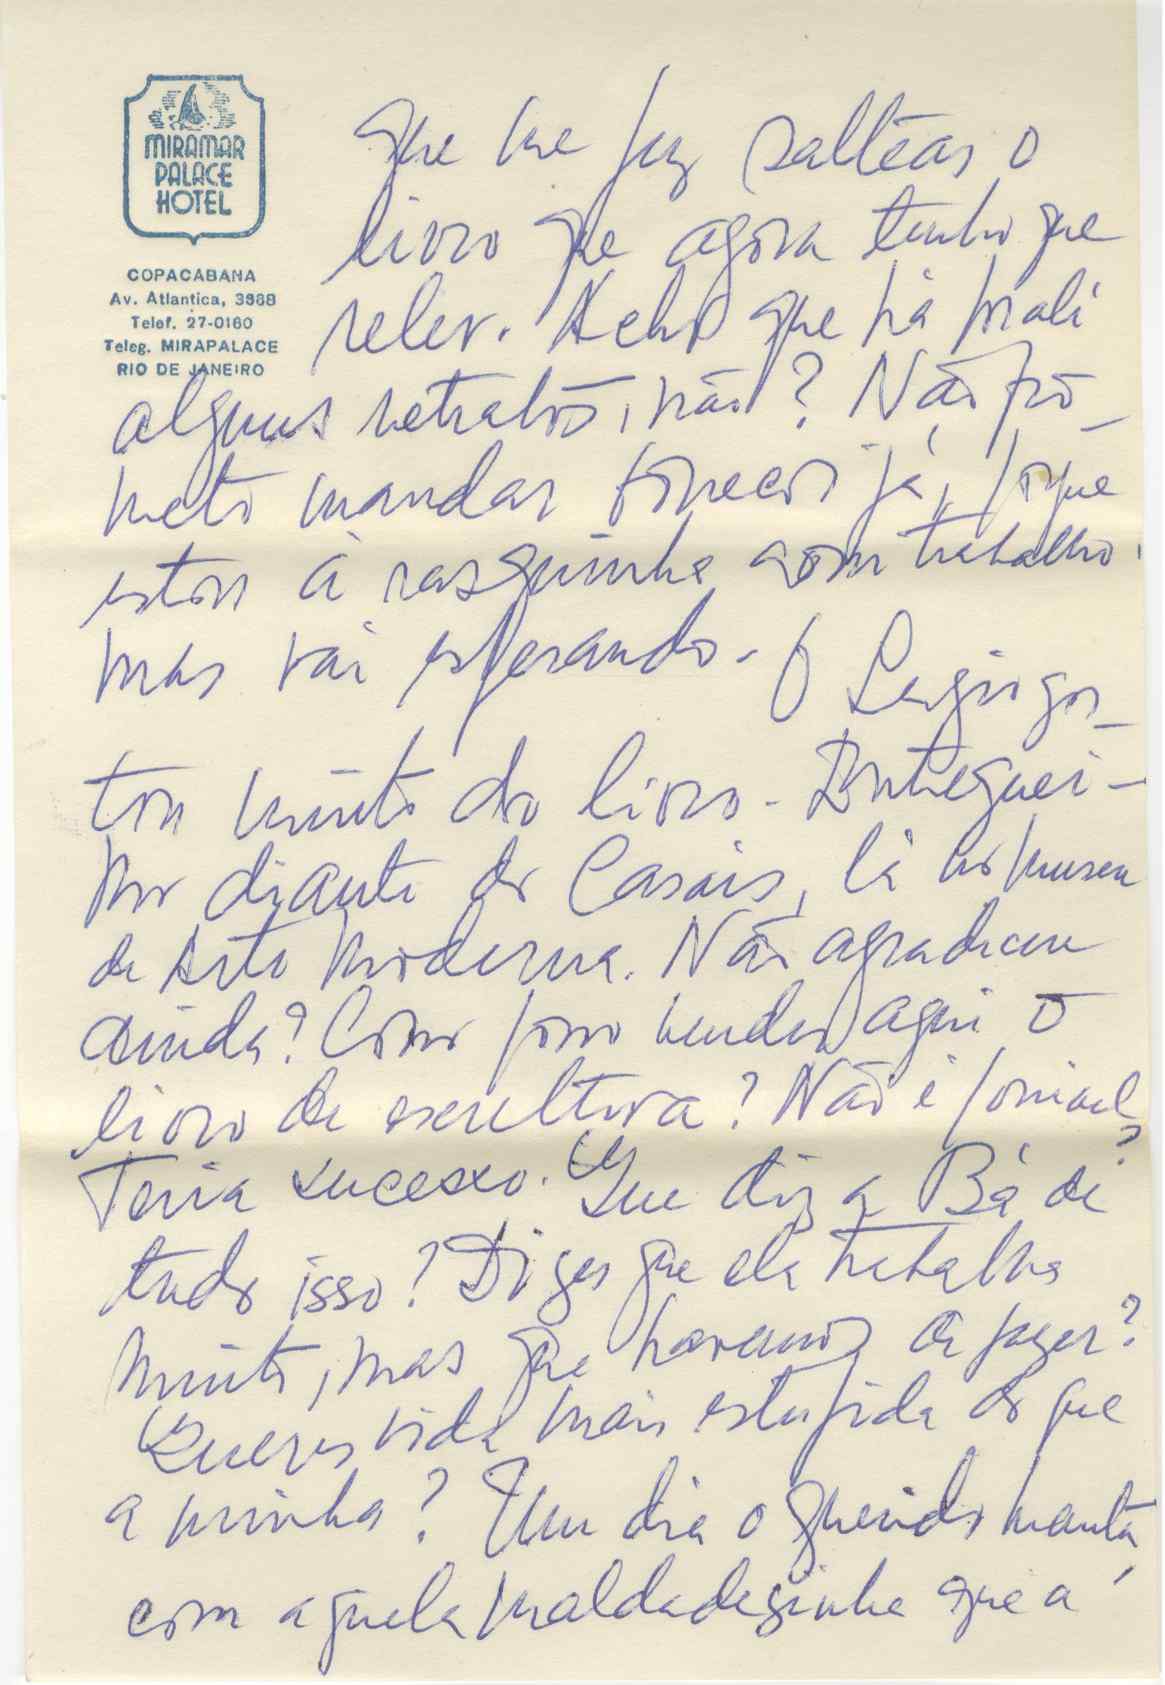 MIRAMAR
PALACE
HOTEL
COPACABANA
Av. Atlantica, 3668
Telef. 27-0160
Teleg. MIRAPALACE
RIO DE JANEIRO
que me fez saltear o
livro que agora tenho que
reler. Acho que há
alguns retratos, não? Não pro-
meto mandar já, porque
estou à rasquinha com trabalho.
mas vai esperando. O Sergio gos-
tou muito do livro. Entreguei-
lho diante do Casais, lá no museu
de Arte Moderna. Não agradeceu
ainda? Como posso vender aqui o
livro de escultura? Não é possível?
Teria sucesso. Que diz a Bá de
tudo isso? Dizes que ela trabalha
muito, mas que havemos de fazer?
Queres vida mais estupida do que
a minha? Um dia o querido manta,
com aquela maldadezinha que a